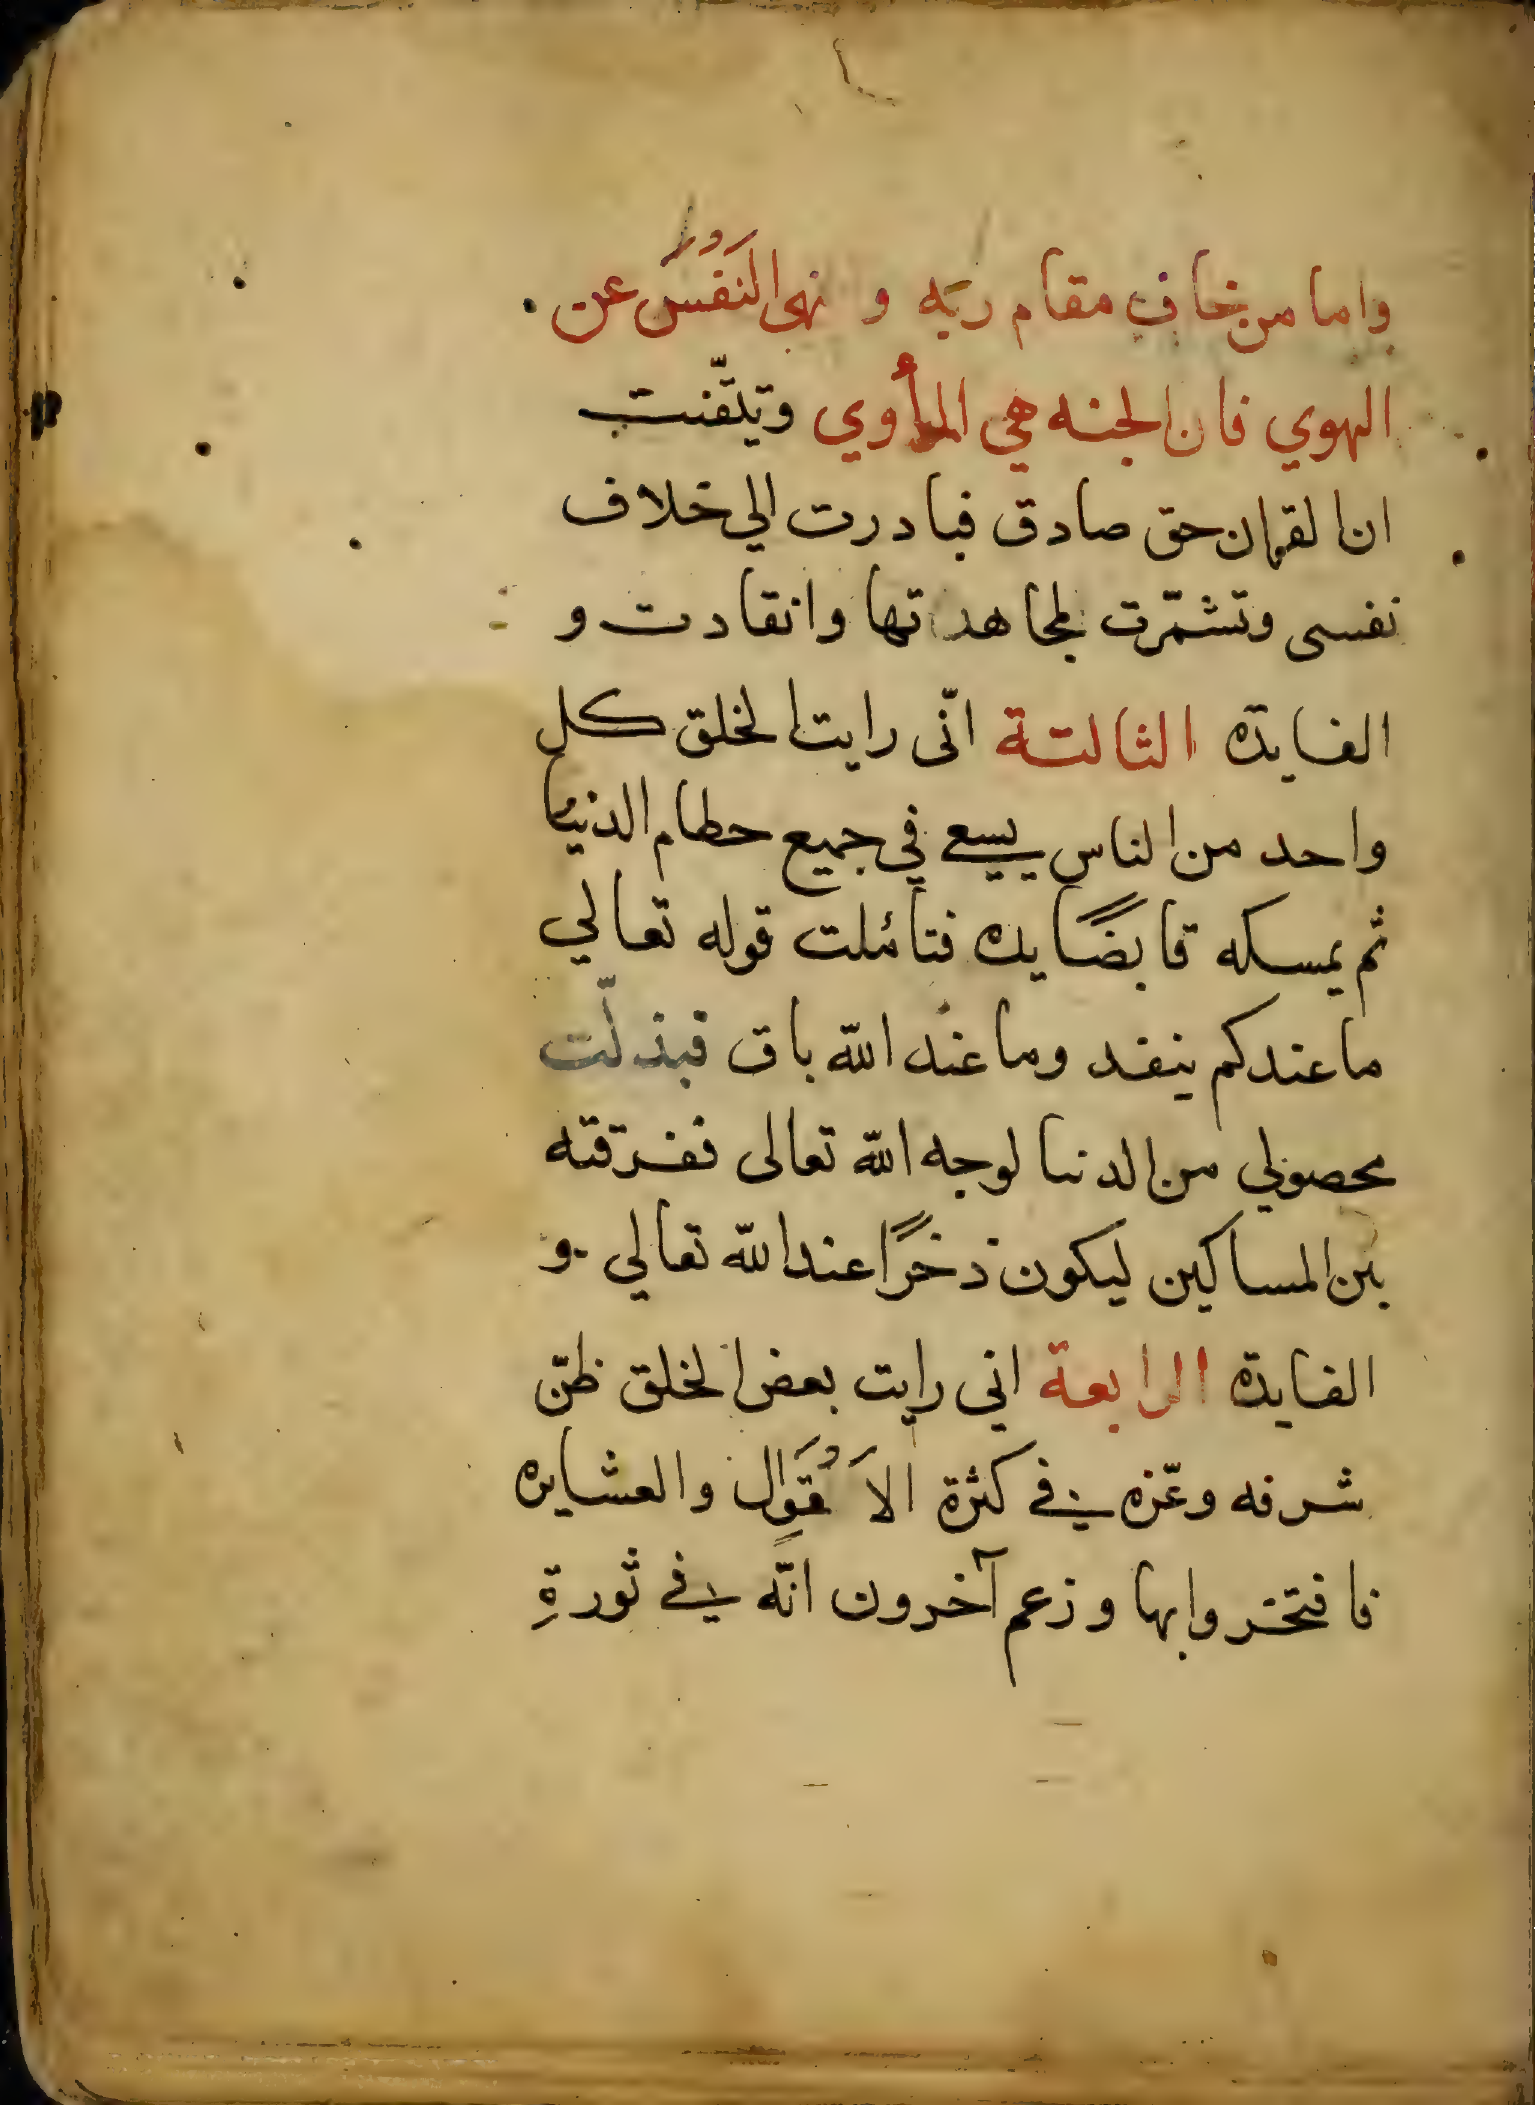 واما من خاف مقام ربه و نهى النَفْسَ عن
الهوي فان الجنه هي المأوي وتيقّنت
ان القران حق صادق فبادرت الي خلاف
نفسى وتشمّرت لمجاهدتها وانقادت و
الفايدة الثالثة انّى رايت الخلق كل
واحد من الناس يسعي في جميع حطام الدنيا
ثم يمسكه قابضًا يده فتأملت قوله تعالي
ما عندكم ينفد وما عند الله باق فبذلّت
محصولي من الدنيا لوجه الله تعالى ففرقته
بين المساكين ليكون ذخرًا عند الله تعالي و
الفايدة الرابعة اني رايت بعض الخلق ظنّ
شرفه وعّزه في كثرة الاَقْوَالِ والعشايره
فافتخروا بها وزعم آخرون انّه في ثورةِ